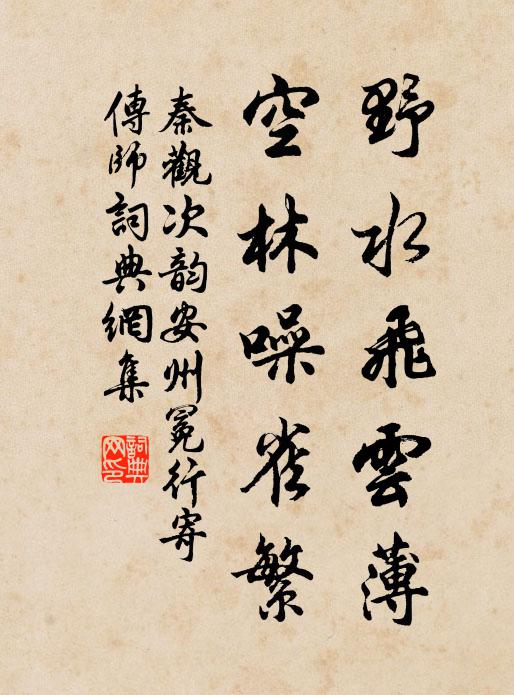 野水飛雲薄
空林噪雀繁
秦觀次韵安州晚行寄
傳師詞典網集
詞典网印